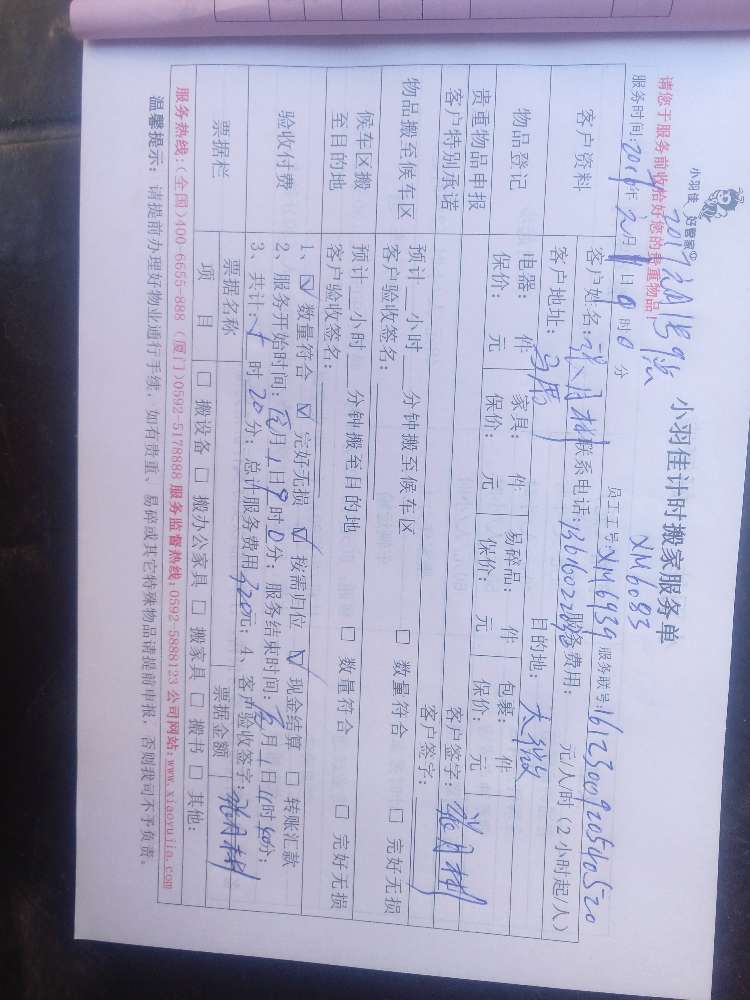 小羽佳 好智家
小羽佳计时搬家服务单
XM6083
请您于服务前收拾好您的贵重物品！
员工工号：XM6939 服务联号：1612300920540520
服务时间： 年 月 日 时 分
客户资料
客户姓名： 联系电话： 服务费用： 元/人/时（2小时起/人）
客户地址： 目的地：
物品登记
电器： 件 家具： 件 易碎品： 件 包裹： 件
保价： 元 保价： 元 保价： 元 保价： 元
贵重物品申报
客户签字：
客户特别承诺
客户签字：
物品搬至候车区
预计 小时 分钟搬至候车区 □ 数量符合 □ 完好无损
客户验收签名：
候车区搬至目的地
预计 小时 分钟搬至目的地 □ 数量符合 □ 完好无损
客户验收签名：
验收付费
1、☑ 数量符合 ☑ 完好无损 ☑ 按需归位 ☑ 现金结算 □ 转账汇款
2、服务开始时间： 月1日9时0分；服务结束时间： 月1日11时 分；
3、共计： 时20分；总计服务费用320元；4、客户验收签字：
票据栏
票据名称 票据金额
项 目 □ 搬设备 □ 搬办公家具 □ 搬家具 □ 搬书 □ 其他：
服务热线：(全国)400-6655-888 (厦门)0592-5178888 服务监督热线：0592-5888123 公司网站：www.xiaoyujia.com
温馨提示：请提前办理好物业通行手续，如有贵重、易碎或其它特殊物品请提前申报，否则我司不予负责。